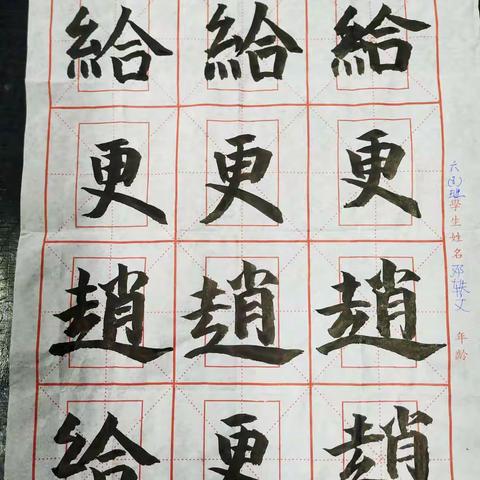 給給給
更更更
趙趙趙
給更趙
六(3)班
學生姓名
邓轶文
年齡